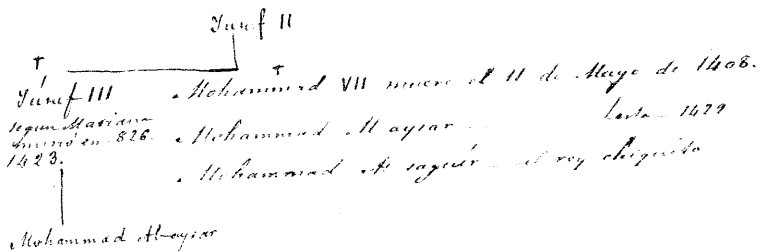 Yusuf II
Yúsuf III
segun Mariana
murió en 826.
1423.
Mohammad VII muere el 11 de Mayo de 1408.
Mohammad Al aysar hasta 1429
Mohammad As saguir el rey chiquito
Mohammad Al-aysar